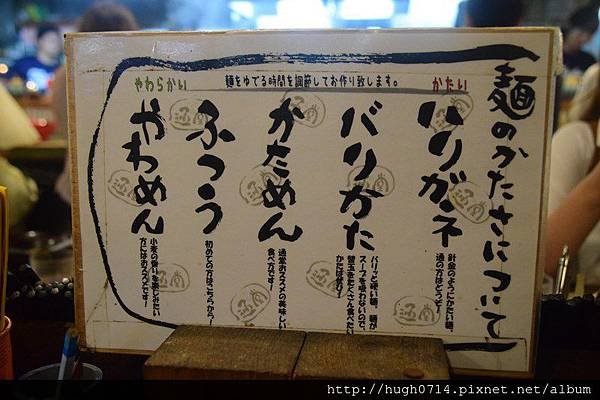 麺のかたさについて
かたい
麺をゆでる時間を調節してお作り致します。
やわらかい
ハリガネ
針金のようにかたい麺。
通の方はどうぞ!
バリかた
バリッと硬い麺、麺が
スープを吸わないので、
替玉をたくさん食べたい
かたは是非!
かためん
通常おススメの美味しい
食べ方です!
ふつう
初めての方はこちらから!
やわめん
小麦の香りを楽しみたい
方にはおススメです!
http://hugh0714.pixnet.net/album